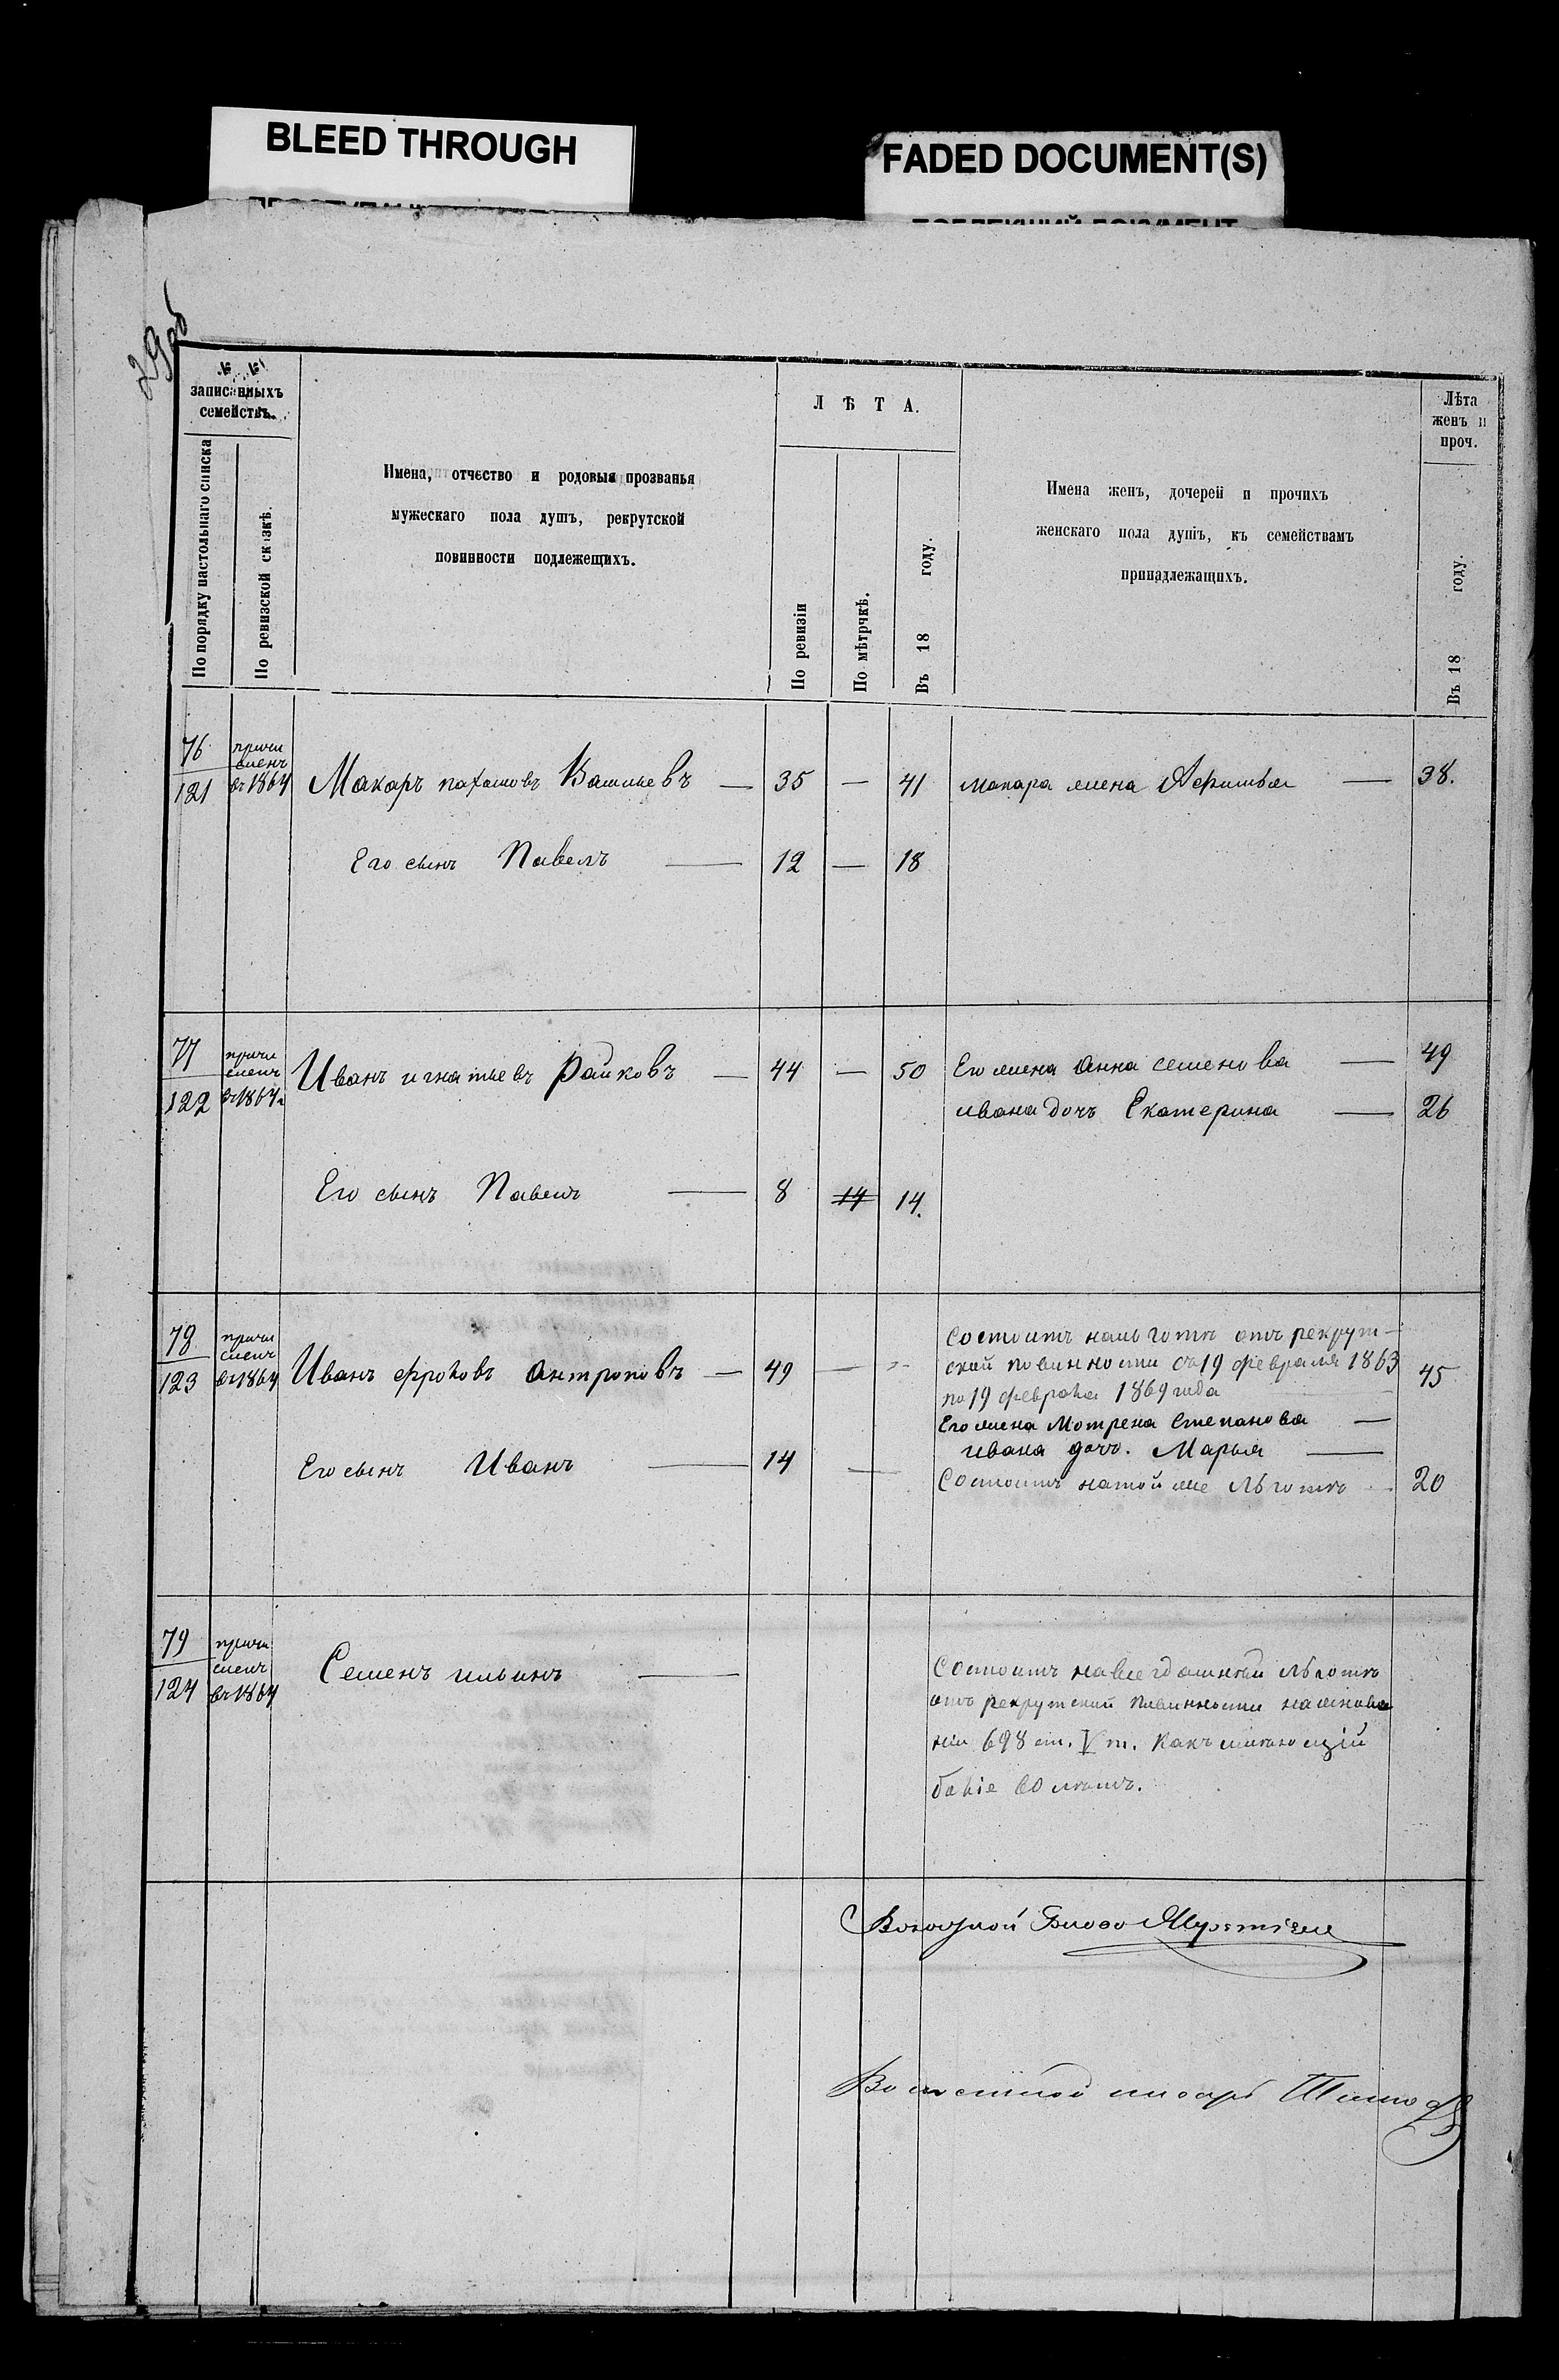 BLEED THROUGH
FADED DOCUMENT(S)
29об
№ №
записанныхъ
семействъ.
По порядку настольнаго списка
По ревизской сказкѣ.
Имена, отчество и родовыя прозванья
мужескаго пола душъ, рекрутской
повинности подлежещихъ.
Л Ѣ Т А.
По ревизіи
По мѣтрчкѣ.
Въ 18 году.
Имена женъ, дочерей и прочихъ
женскаго пола душъ, къ семействамъ
принадлежащихъ.
Лѣта
женъ и
проч.
Въ 18 году.
76
121
причи
сленъ
въ 1864
Макаръ Васильевъ — 35 — 41 макара жена — 38.
Его сынъ Павелъ — 12 — 18
77
122
причи
сленъ
въ 1864
Иванъ игнатьевъ Райковъ — 44 — 50 Его жена Анна семенова — 49
ивана дочь Екатерина — 26
Его сынъ Павелъ — 8 14 14.
78
123
причи
сленъ
въ 1864
Состоитъ нальготѣ отъ рекрут-
ской повинности съ 19 февраля 1863
по 19 февраля 1869 года
Иванъ фроловъ Антроповъ — 49 — 45
Его жена Мотрена Степанова —
ивана дочь. Марья —
Его сынъ Иванъ — 14 —
Состоитъ натойже льготѣ 20
79
124
причи
сленъ
въ 1864
Семенъ ильинъ —
Состоитъ навсегдашней льготѣ
отъ рекрутской повинности наоснова
ніи 698 ст. V т. Какъ
болѣе 60 лѣтъ.
Волостной
Волостной писарь